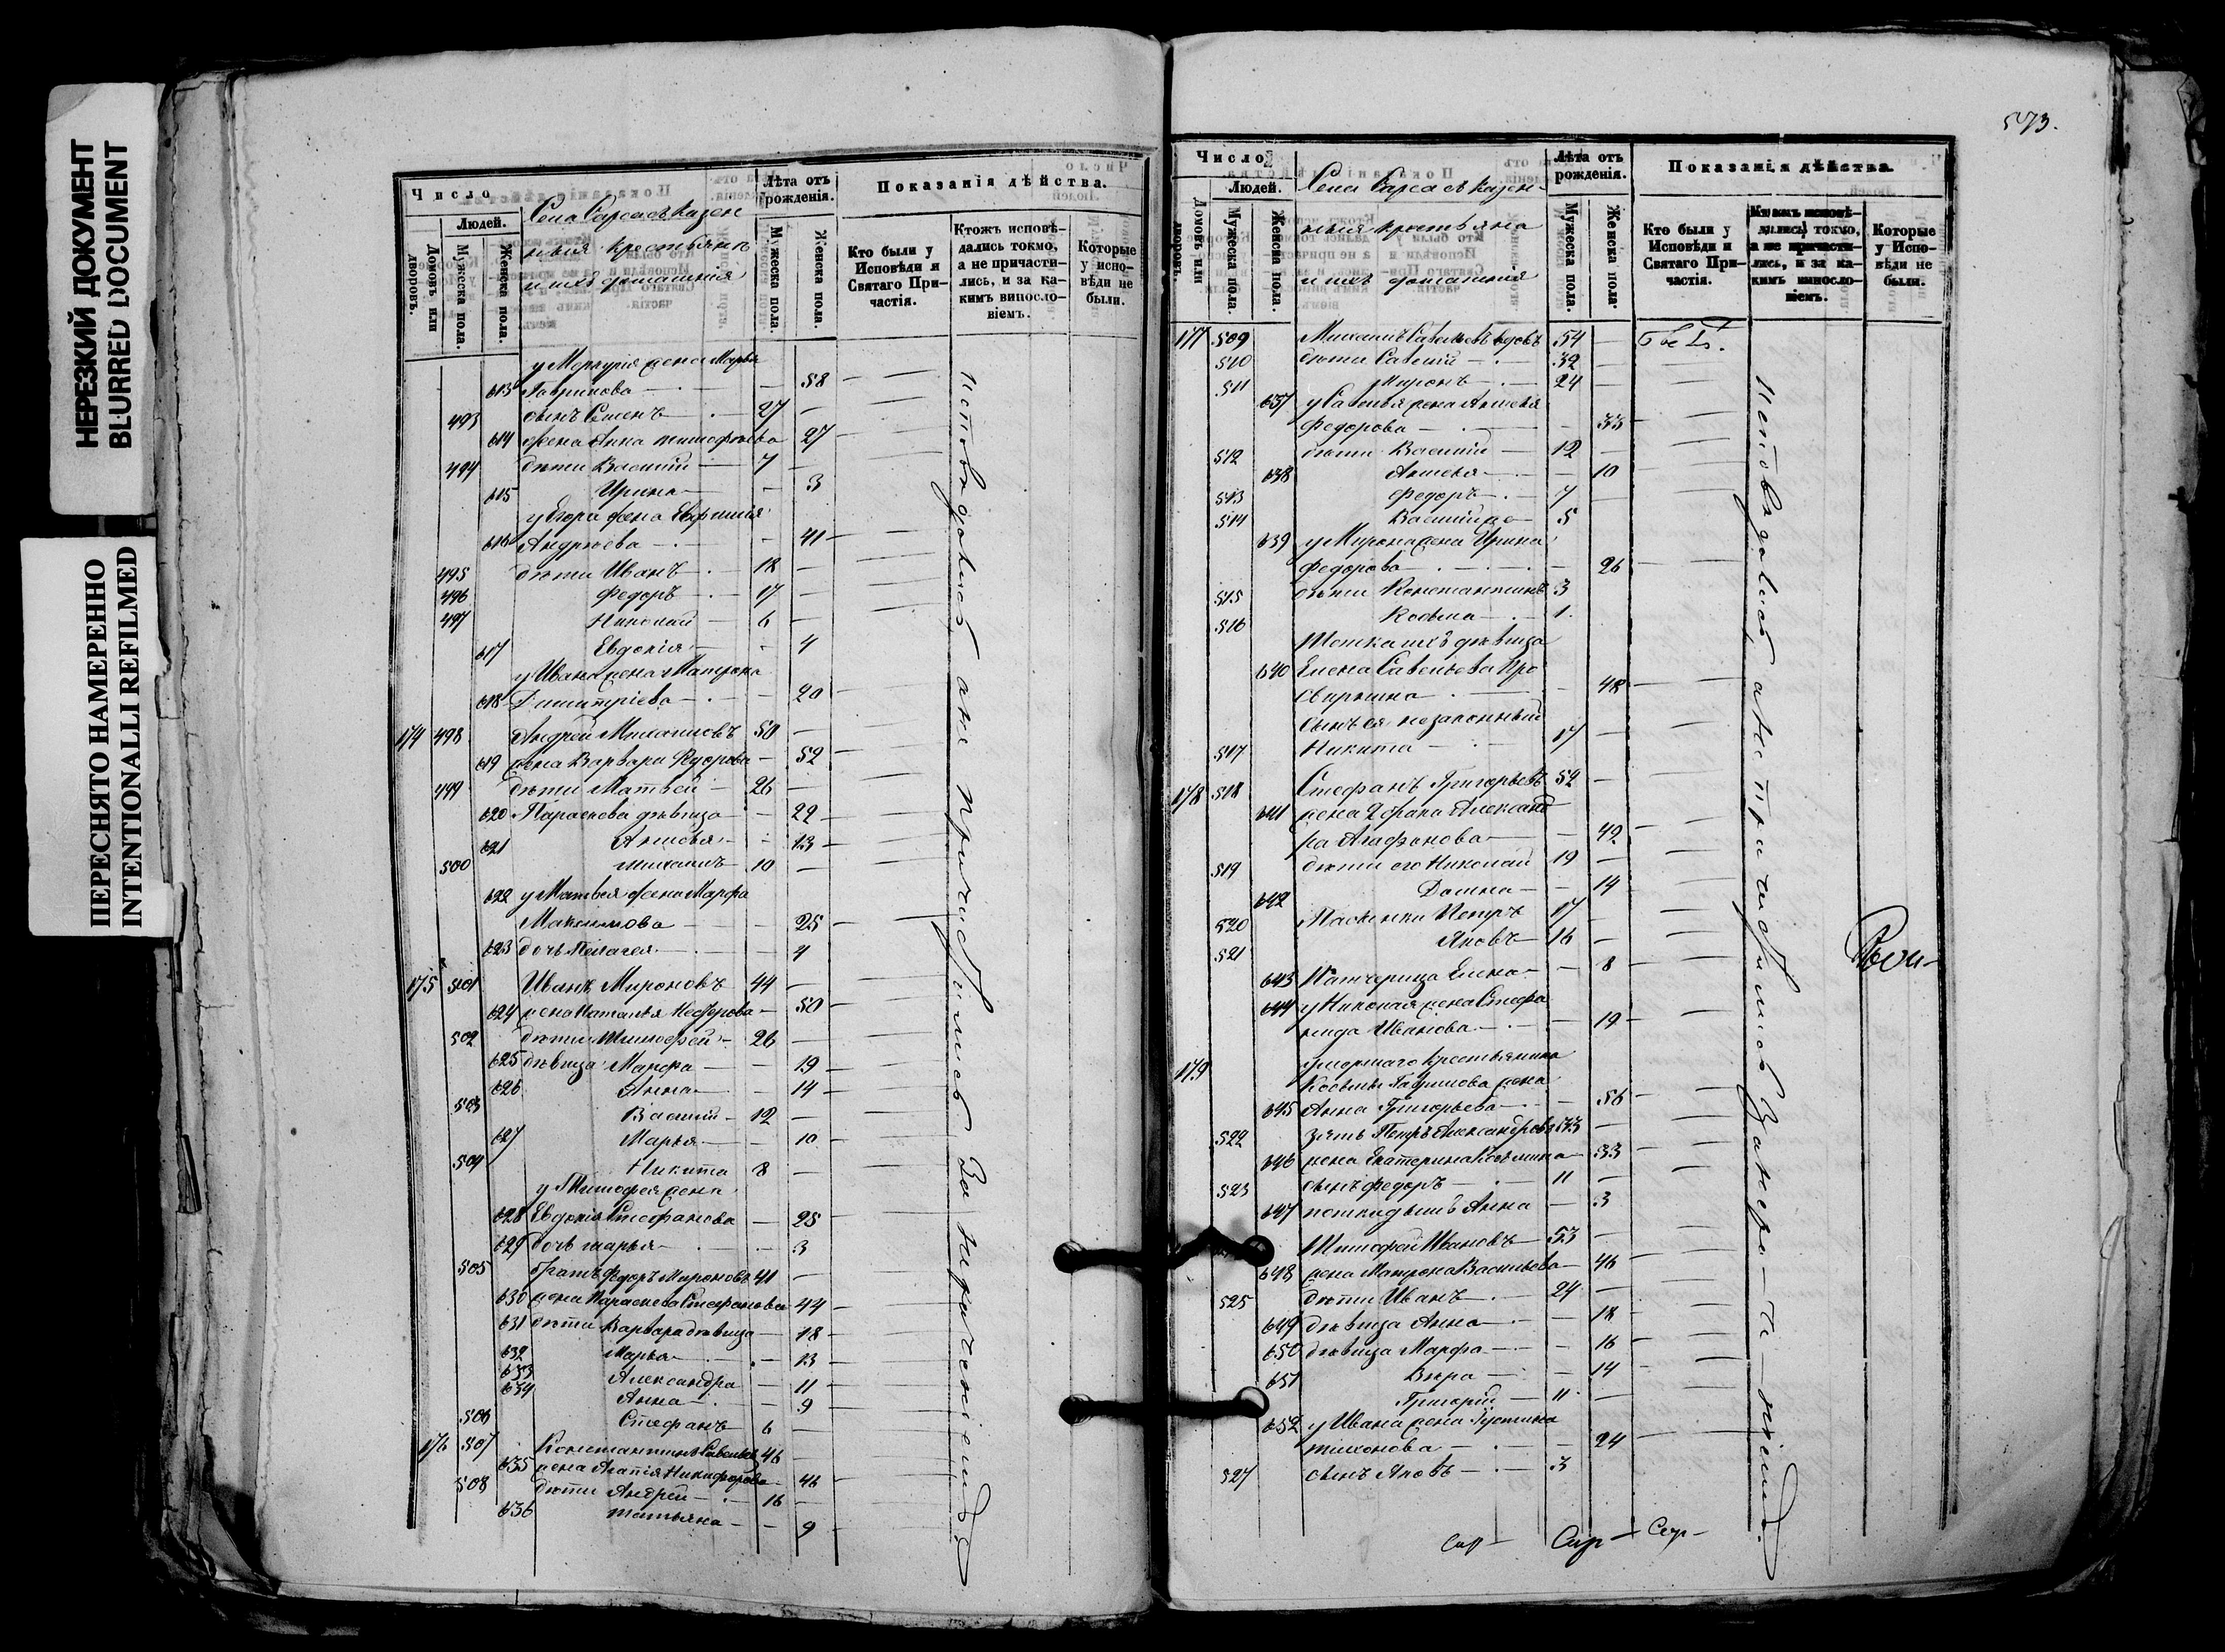 НЕРЕЗКИЙ ДОКУМЕНТ
BLURRED DOCUMENT
ПЕРЕСНЯТО НАМЕРЕННО
INTENTIONALLI REFILMED
Число
Людей.
Домовъ или дворовъ.
Мужеска пола.
Женска пола.
Села Сарсасъ казен
ныя крестьянъ
и ихъ домашнія
Лѣта отъ рожденія.
Мужеска пола.
Женска пола.
Показанія дѣйства.
Кто были у Исповѣди и Святаго Причастія.
Ктожъ исповѣ-
дались токмо,
а не причасти-
лись, и за ка-
кимъ виносло-
віемъ.
Которые
у испо-
вѣди не
были.
у Меркурія жена Марья
613 Гаврилова — 58
493 сынъ Семенъ — 27
614 жена Анна Тимофѣева 27
494 дѣти Василій — 7
615 Ирина — 3
у Егора жена Евфимія
616 Андреева — 41
495 дѣти Иванъ — 18
496 Федоръ — 17
497 Николай — 6
617 Евдокія — 4
у Ивана жена Матрона
618 Димитріева — 20
174 498 Андрей Михаиловъ 50
619 жена Варвара Федорова — 52
499 дѣти Матвей — 26
620 Параскева дѣвица — 22
621 — 13
500 Михаилъ — 10
622 у Матвея жена Марфа
Максимова — 25
623 дочь Пелагея — 4
175 501 Иванъ Мироновъ 44
624 жена Наталья — 50
502 дѣти Тимофей — 26
625 дѣвица Марфа — 19
626 Анна — 14
503 Василій — 12
627 Марья — 10
504 Никита 8
у Тимофея жена
628 Евдокія Стефанова — 25
629 дочь Марья — 3
505 братъ Федоръ Мироновъ 41
630 жена Параскева Стефанова 44
631 дѣти Варвара дѣвица — 18
632 Марья — 13
633 Александра — 11
634 Анна — 9
506 Стефанъ 6
176 507 Константинъ Савельевъ 46
635 жена Агапія Никифорова 46
508 дѣти Андрей — 16
636 Татьяна — 9
исповѣдались, а не причастились за нераченіемъ
573.
Число
Людей.
Домовъ или дворовъ.
Мужеска пола.
Женска пола.
Села Сарсасъ казен-
ныя крестьяна
и ихъ домашнія
Лѣта отъ рожденія.
Мужеска пола.
Женска пола.
Показанія дѣйства.
Кто были у
Исповѣди и
Святаго При-
частія.
Ктожъ исповѣ-
дались токмо,
а не причасти-
лись, и за ка-
кимъ винosло-
віемъ.
Которые
у Испо-
вѣди не
были.
177 509 Михаилъ Савельевъ вдовъ 54
510 дѣти Савелій — 32
511 Миронъ — 24
637 у Савелья жена
Федорова — 33
512 дѣти Василій — 12
638 — 10
513 Федоръ — 7
514 — 5
639 у Мирона жена Ирина
Федорова — 26
515 дѣти Константинъ 3
516 Косьма — 1
Тетка ихъ дѣвица
640 Елена Савельева
— 48
сынъ ея незаконный
517 Никита — 17
178 518 Стефанъ Григорьевъ 52
641 жена 2 брака Александ
ра Агафонова — 42
519 дѣти его Николай 19
642 Домна — 14
520 Пасынки Петръ 17
521 Яковъ — 16
643 Патчерица Елена — 8
644 у Николая жена Стефа
нида Иванова — 19
179 умершаго крестьянина
Космы Гаврилова жена
645 Анна Григорьева — 56
522 зять Петръ Александровъ 33
646 жена Екатерина Козьмина — 33
523 сынъ Федоръ — 11
647 Анна — 3
Тимофей Ивановъ — 53
648 жена Матрона Васильева — 46
525 дѣти Иванъ — 24
649 дѣвица Анна — 18
650 дѣвица Марфа — 16
651 Вѣра — 14
Григорій — 11
652 у Ивана жена Устинья
Тихонова — 24
527 сынъ Яковъ — 3
исповѣдались, а не причастились за нераченіемъ.